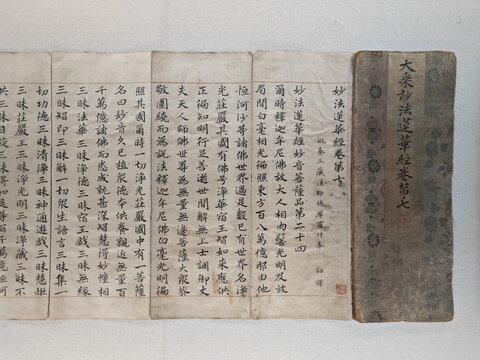 大乘妙法蓮華經卷第七
妙法蓮華經卷第七
姚秦三藏法師鳩摩羅什奉 詔譯
妙法蓮華經妙音菩薩品第二十四
爾時釋迦牟尼佛放大人相肉髻光明及放
眉間白毫相光徧照東方百八萬億那由他
恒河沙等諸佛世界過是數已有世界名淨
光莊嚴其國有佛號淨華宿王智如來應供
正徧知明行足善逝世間解無上士調御丈
夫天人師佛世尊為無量無邊菩薩大衆恭
敬圍繞而為說法釋迦牟尼佛白毫光明徧
照其國爾時一切淨光莊嚴國中有一菩薩
名曰妙音久已植衆德本供養親近無量百
千萬億諸佛而悉成就甚深智慧得妙幢相
三昧法華三昧淨德三昧宿王戲三昧無緣
三昧智印三昧解一切衆生語言三昧集一
切功德三昧清淨三昧神通遊戲三昧慧炬
三昧莊嚴王三昧淨光明三昧淨藏三昧不
共三昧日旋三昧得如是等百千萬億恒河